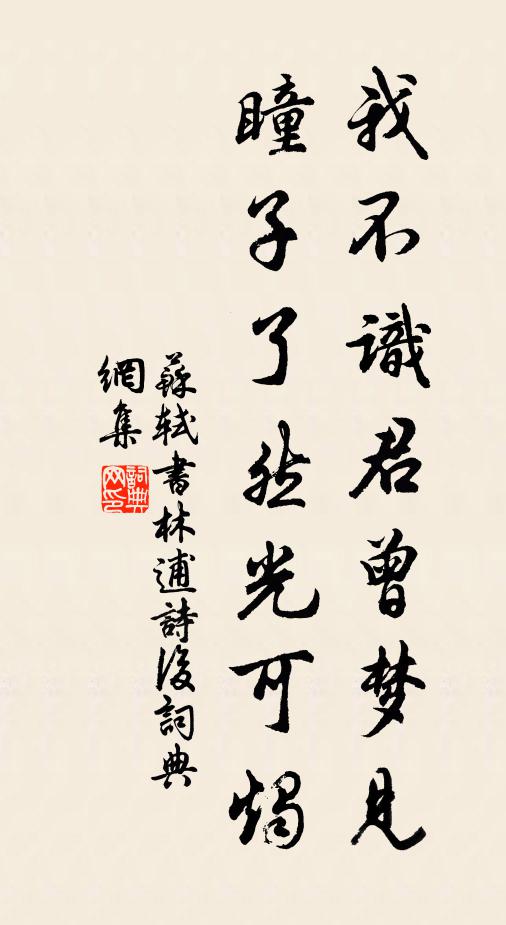 我不識君曾梦見
瞳子了然光可燭
蘇軾書林逋詩後詞典
網集
詞典網印